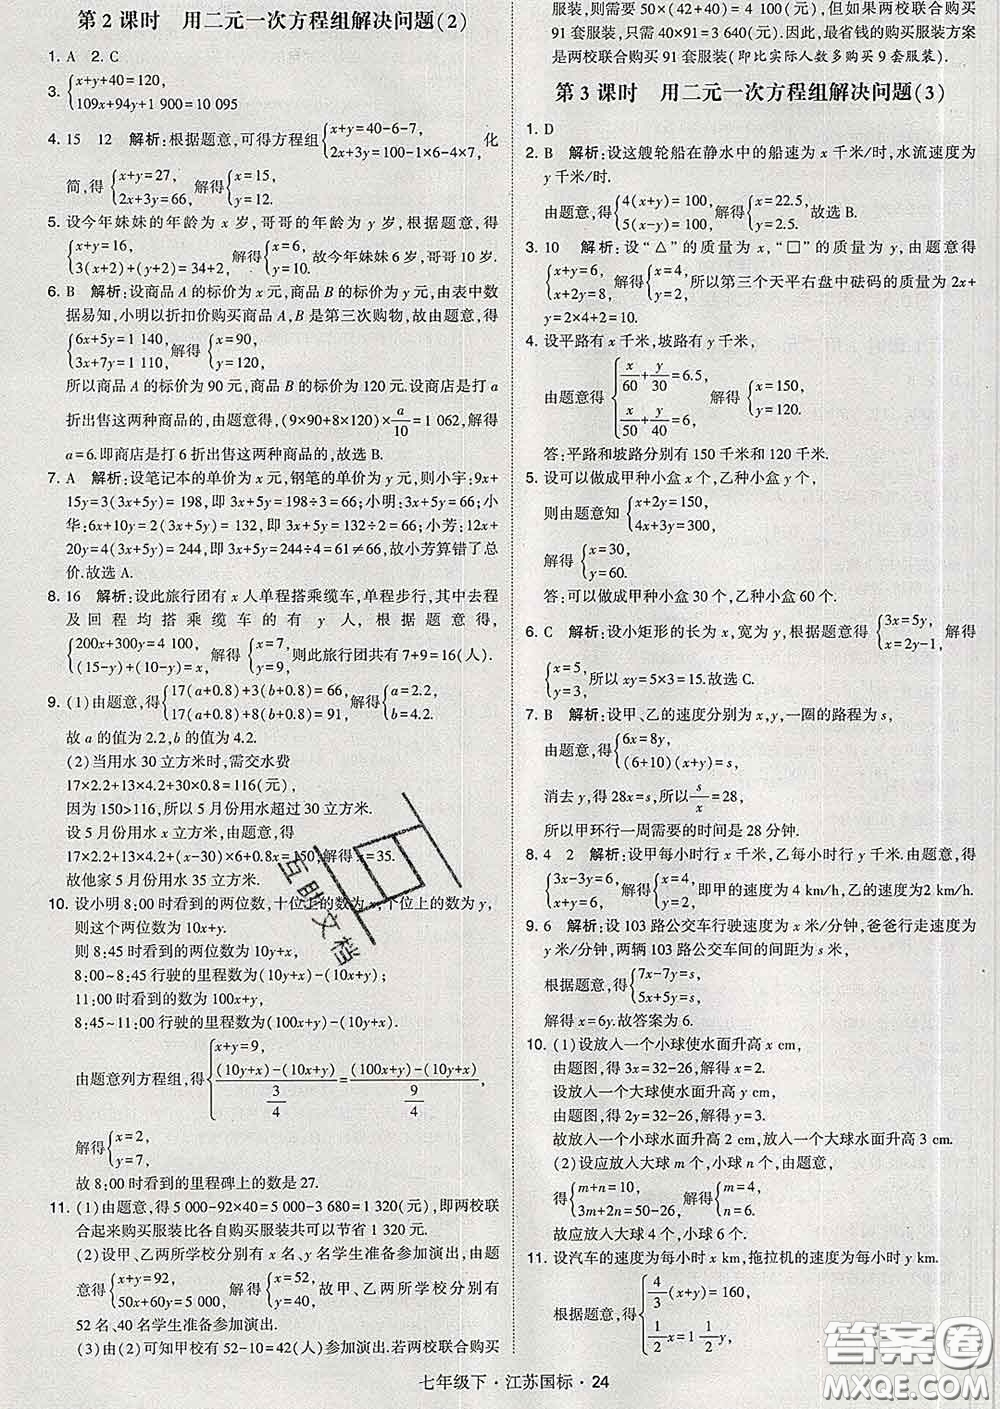 第 2 课时　用二元一次方程组解决问题(2)
1. A　2. C
3. {x+y+40=120,
109x+94y+1 900=10 095
4. 15　12　解析:根据题意,可得方程组{x+y=40-6-7, 2x+3y=100-1×6-4×7,化
简,得{x+y=27, 2x+3y=66,解得{x=15, y=12.
5. 设今年妹妹的年龄为 x 岁,哥哥的年龄为 y 岁,根据题意得
{x+y=16, 3(x+2)+(y+2)=34+2,解得{x=6, y=10.故今年妹妹 6 岁,哥哥 10 岁.
6. B　解析:设商品 A 的标价为 x 元,商品 B 的标价为 y 元,由表中数
据易知,小明以折扣价购买商品 A,B 是第三次购物,故由题意,得
{6x+5y=1 140, 3x+7y=1 110,解得{x=90, y=120.
所以商品 A 的标价为 90 元,商品 B 的标价为 120 元.设商店是打 a
折出售这两种商品的,由题意得,(9×90+8×120)×a/10=1 062,解得
a=6.即商店是打 6 折出售这两种商品的,故选 B.
7. A　解析:设笔记本的单价为 x 元,钢笔的单价为 y 元,则小宇:9x+
15y=3(3x+5y)=198,即 3x+5y=198÷3=66;小明:3x+5y=66;小
华:6x+10y=2(3x+5y)=132,即 3x+5y=132÷2=66;小芳:12x+
20y=4(3x+5y)=244,即 3x+5y=244÷4=61≠66,故小芳算错了总
价.故选 A.
8. 16　解析:设此旅行团有 x 人单程搭乘缆车,单程步行,其中去程
及回程均搭乘缆车的有 y 人,根据题意得,
{200x+300y=4 100, (15-y)+(10-y)=x,解得{x=7, y=9,则此旅行团共有 7+9=16(人).
9. (1)由题意,得{17(a+0.8)+3(b+0.8)=66, 17(a+0.8)+8(b+0.8)=91,解得{a=2.2, b=4.2.
故 a 的值为 2.2,b 的值为 4.2.
(2)当用水 30 立方米时,需交水费
17×2.2+13×4.2+30×0.8=116(元),
因为 150>116,所以 5 月份用水超过 30 立方米.
设 5 月份用水 x 立方米,由题意,得
17×2.2+13×4.2+(x-30)×6+0.8x=150,解得 x=35.
故他家 5 月份用水 35 立方米.
10. 设小明 8:00 时看到的两位数,十位上的数为 x,个位上的数为 y,
则这个两位数为 10x+y.
则 8:45 时看到的两位数为 10y+x,
8:00~8:45 行驶的里程数为(10y+x)-(10x+y),
11:00 时看到的数为 100x+y,
8:45~11:00 行驶的里程数为(100x+y)-(10y+x).
由题意列方程组,得{x+y=9, ((10y+x)-(10x+y))/(3/4)=((100x+y)-(10y+x))/(9/4),
解得{x=2, y=7,
故 8:00 时看到的里程碑上的数是 27.
11. (1)由题意,得 5 000-92×40=5 000-3 680=1 320(元),即两校联
合起来购买服装比各自购买服装共可以节省 1 320 元.
(2)设甲、乙两所学校分别有 x 名、y 名学生准备参加演出,由题
意得{x+y=92, 50x+60y=5 000,解得{x=52, y=40,故甲、乙两所学校分别有
52 名、40 名学生准备参加演出.
(3)由(2)可知甲校有 52-10=42(人)参加演出.若两校联合购买
服装,则需 50×(42+40)=4 100(元),但如果两校联合购买
91 套服装,只需 40×91=3 640(元).因此,最省钱的购买服装方案
是两校联合购买 91 套服装(即比实际人数多购买 9 套服装).
第 3 课时　用二元一次方程组解决问题(3)
1. D
2. B　解析:设这艘轮船在静水中的船速为 x 千米/时,水流速度为
y 千米/时.
由题意,得{4(x+y)=100, 5(x-y)=100,解得{x=22.5, y=2.5.故选 B.
3. 10　解析:设“△”的质量为 x,“□”的质量为 y,由题意得
{x+y=6, x+2y=8,解得{x=4, y=2,所以第三个天平右盘中砝码的质量为 2x+
y=2×4+2=10.
4. 设平路有 x 千米,坡路有 y 千米,
由题意得{x/60+y/30=6.5, x/50+y/40=6,解得{x=150, y=120.
答:平路和坡路分别有 150 千米和 120 千米.
5. 设可以做成甲种小盒 x 个,乙种小盒 y 个,
则由题意知{x+2y=150, 4x+3y=300,
解得{x=30, y=60.
答:可以做成甲种小盒 30 个,乙种小盒 60 个.
6. C　解析:设小矩形的长为 x,宽为 y,根据题意得{3x=5y, x=2y-1,解得
{x=5, y=3,所以 xy=5×3=15.故选 C.
7. B　解析:设甲、乙的速度分别为 x,y,一圈的路程为 s,
由题意,得{6x=8y, (6+10)(x+y)=s,
消去 y,得 28x=s,所以s/x=28,
所以甲环行一周需要的时间是 28 分钟.
8. 4　2　解析:设甲每小时行 x 千米,乙每小时行 y 千米.由题意,得
{3x-3y=6, x+y=6,解得{x=4, y=2,即甲的速度为 4 km/h,乙的速度为 2 km/h.
9. 6　解析:设 103 路公交车行驶速度为 x 米/分钟,爸爸行走速度为
y 米/分钟,两辆 103 路公交车间的间距为 s 米,
根据题意,得{7x-7y=s, 5x+5y=s,
解得 x=6y.故答案为 6.
10. (1)设放入一个小球使水面升高 x cm,
由题图,得 3x=32-26,解得 x=2.
设放入一个大球使水面升高 y cm,
由题图,得 2y=32-26,解得 y=3.
故放入一个小球水面升高 2 cm,放入一个大球水面升高 3 cm.
(2)设应放入大球 m 个,小球 n 个.由题意,
得{m+n=10, 3m+2n=50-26,解得{m=4, n=6.
故应放入大球 4 个,小球 6 个.
11. 设汽车的速度为每小时 x km,拖拉机的速度为每小时 y km.
根据题意,得{4/3(x+y)=160, 1/2x=1 1/2y.
七年级下·江苏国标·24
互助文档
答案圈
MXQE.COM